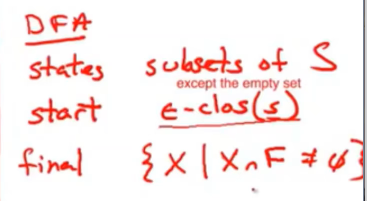 DFA
states subsets of S
except the empty set
start ε-clos(s)
final {X | X ∩ F ≠ ϕ}